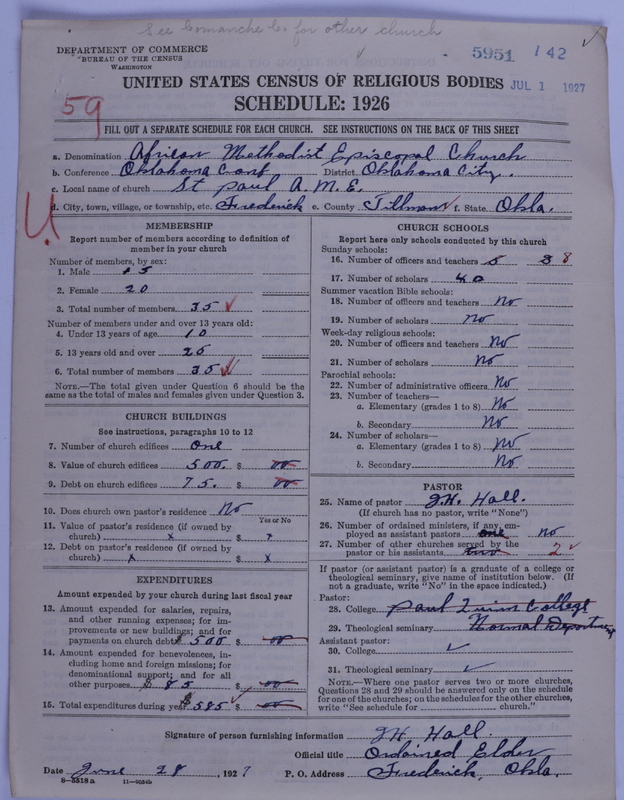 See Comanche Co. for other church
DEPARTMENT OF COMMERCE
BUREAU OF THE CENSUS
WASHINGTON
5951 142
JUL 1 1927
UNITED STATES CENSUS OF RELIGIOUS BODIES
SCHEDULE: 1926
59
FILL OUT A SEPARATE SCHEDULE FOR EACH CHURCH. SEE INSTRUCTIONS ON THE BACK OF THIS SHEET
a. Denomination African Methodist Episcopal Church
b. Conference Oklahoma Conf District Oklahoma City.
c. Local name of church St Paul A. M. E.
d. City, town, village, or township, etc. Frederick e. County Tillman f. State Okla.
U.
MEMBERSHIP
Report number of members according to definition of
member in your church
Number of members, by sex:
1. Male 15
2. Female 20
3. Total number of members 35 ✓
Number of members under and over 13 years old:
4. Under 13 years of age 10
5. 13 years old and over 25
6. Total number of members 35 ✓
NOTE.—The total given under Question 6 should be the
same as the total of males and females given under Question 3.
CHURCH BUILDINGS
See instructions, paragraphs 10 to 12
7. Number of church edifices One
8. Value of church edifices 500. $ 00
9. Debt on church edifices 75. $ 00
10. Does church own pastor's residence No
Yes or No
11. Value of pastor's residence (if owned by
church) x $ x
12. Debt on pastor's residence (if owned by
church) x $ x
EXPENDITURES
Amount expended by your church during last fiscal year
13. Amount expended for salaries, repairs,
and other running expenses; for im-
provements or new buildings; and for
payments on church debt $500 $ 00
14. Amount expended for benevolences, in-
cluding home and foreign missions; for
denominational support; and for all
other purposes $85 $ 00
15. Total expenditures during year $585 ✓ $ 00
CHURCH SCHOOLS
Report here only schools conducted by this church
Sunday schools:
16. Number of officers and teachers 5 38
17. Number of scholars 40
Summer vacation Bible schools:
18. Number of officers and teachers No
19. Number of scholars No
Week-day religious schools:
20. Number of officers and teachers No
21. Number of scholars No
Parochial schools:
22. Number of administrative officers No
23. Number of teachers—
a. Elementary (grades 1 to 8) No
b. Secondary No
24. Number of scholars—
a. Elementary (grades 1 to 8) No
b. Secondary No
PASTOR
25. Name of pastor J.H. Hall.
(If church has no pastor, write "None")
26. Number of ordained ministers, if any, em-
ployed as assistant pastors one No
27. Number of other churches served by the
pastor or his assistants two 2 ✓
If pastor (or assistant pastor) is a graduate of a college or
theological seminary, give name of institution below. (If
not a graduate, write "No" in the space indicated.)
Pastor:
28. College Paul Quinn College
29. Theological seminary Normal Department
Assistant pastor:
30. College ✓
31. Theological seminary ✓
NOTE.—Where one pastor serves two or more churches,
Questions 28 and 29 should be answered only on the schedule
for one of the churches; on the schedules for the other churches,
write "See schedule for church."
Signature of person furnishing information J.H. Hall.
Official title Ordained Elder
Date June 28, 1927 P. O. Address Frederick, Okla.
8-5518a